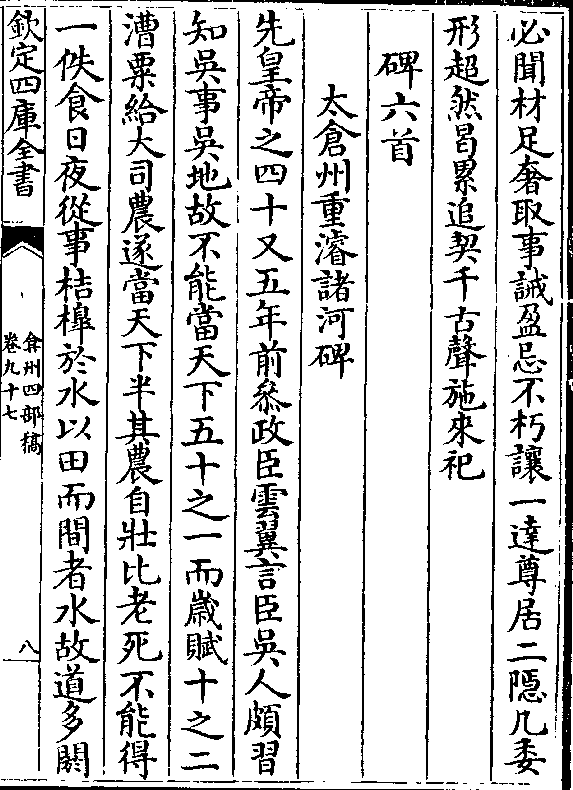 必聞材足奢取事誡盈忌不朽讓一達尊居二隱几委
形超然曷累追契千古聲施來祀
碑六首
太倉州重濬諸河碑
先皇帝之四十又五年前叅政臣雲翼言臣吳人頗習
知吳事吳地故不能當天下五十之一而歲賦十之二
漕粟給大司農遂當天下半其農自壯比老死不能得
一佚食日夜從事桔槹於水以田而間者水故道多閼
欽定四庫全書
弇州四部稿
卷九十七
八